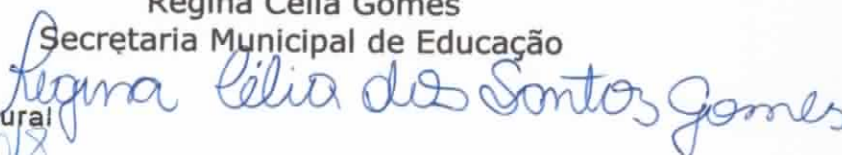 Regina Celia Gomes
Secretaria Municipal de Educação
Regina Célia dos Santos Gomes
ural